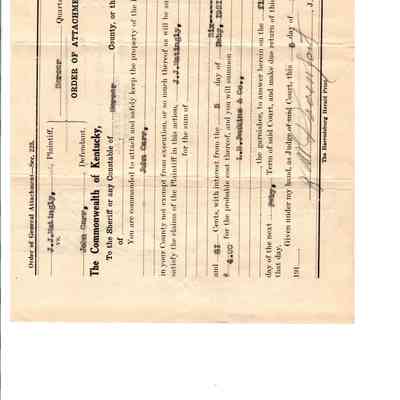 Order of General Attachment—Sec. 228.
Mercer Quarte
J.J.Mattingly, Plaintiff,
vs.
ORDER OF ATTACHME
John Carr, Defendant.
The Commonwealth of Kentucky,
To the Sheriff or any Constable of Mercer County, or th
of
You are commanded to attach and safely keep the property of the
John Carr,
in your County not exempt from execution, or so much thereof as will be su
satisfy the claims of the Plaintiff in this action, J.J.Mattingly,
for the sum of Six
and Cents, with interest from the 5 day of
$ 4.00 for the probable cost thereof, and you will summon
L. & Co.,
, the garnishee, to answer herein on the
day of the next Feby, Term of said Court, and make due return of this
that day.
Given under my hand, as Judge of said Court, this 5 day of
191
J.
The Harrodsburg Herald Print